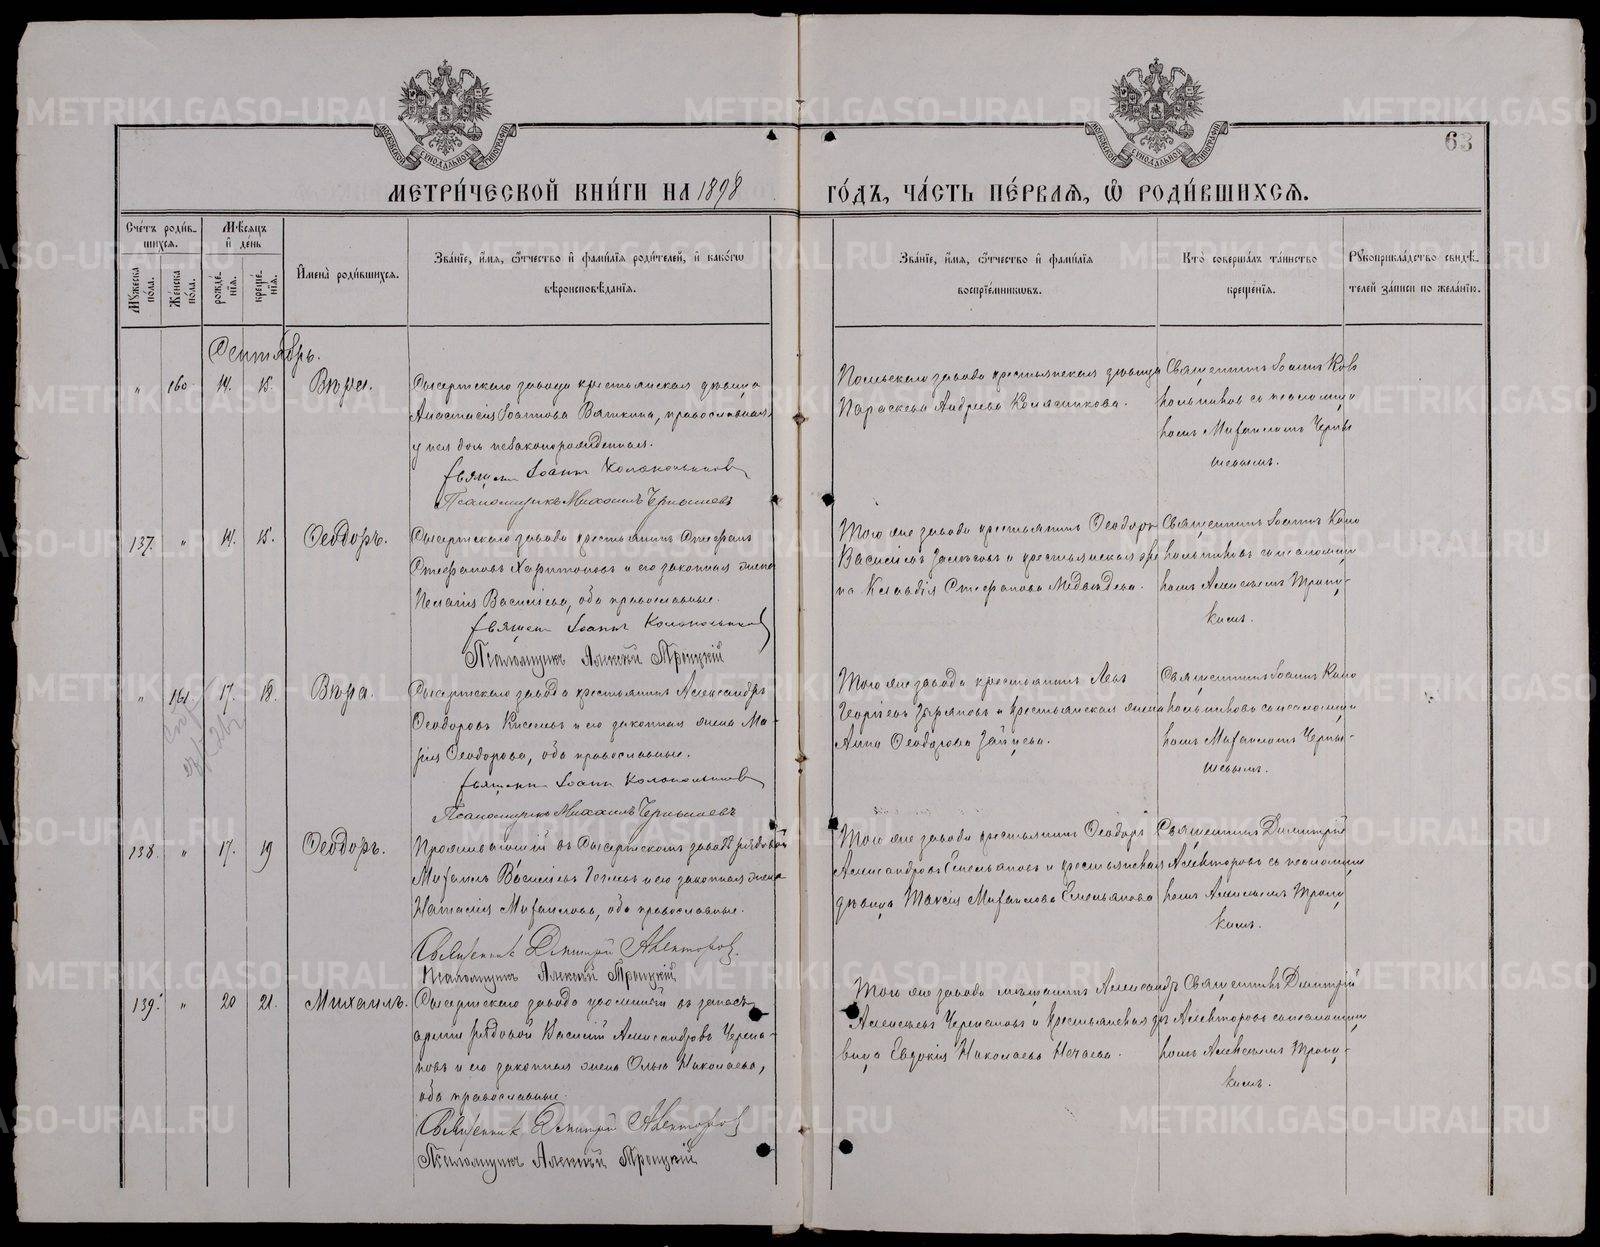 МЕТРИ́ЧЕСКОЙ КНИ́ГИ НА 1898 ГО́ДЪ, ЧА́СТЬ ПЕ́РВАЯ, Ѡ РОДИ́ВШИХСЯ.
63
МОСКОВСКОЙ СУНОДАЛЬНОЙ ТИПОГРАФІИ
МОСКОВСКОЙ СУНОДАЛЬНОЙ ТИПОГРАФІИ
Сче́тъ роди́в-
шихся.
Мꙋ́жеска
по́ла.
Же́нска
по́ла.
Мѣ́сяцъ
и де́нь
рожде́-
нія.
креще́-
нія.
Имена̀ роди́вшихся.
Зва́ніе, и́мя, ѻ́тчество и фами́лія роди́телей, и како́гѡ
вѣроисповѣ́данія.
Зва́ніе, и́мя, ѻ́тчество и фами́лія
воспріе́мникѡвъ.
Кто̀ соверша́лъ та́инство
креще́нія.
Рꙋкоприкла́дство свидѣ́-
телей за́писи по жела́нію.
Сентябрь.
" 160 14. 15. Вѣра.
Сысертскаго завода крестьянская дѣвица
Анастасія Іоаннова Вяткина, православная,
у нея дочь незаконорожденная.
Священ Іоаннъ Колокольников
Псаломщикъ Михаилъ Чернышевъ
крестьянская дѣвица
Параскева Андреева
Священникъ Іоаннъ Коло
кольниковъ съ псаломщи
комъ Михаиломъ Черны
шевымъ.
137. " 14. 15. Ѳеодоръ.
Сысертскаго завода крестьянинъ Стефанъ
Стефановъ Харитоновъ и его законная жена
Пелагія Васильева, оба православные.
Священ Іоаннъ Колокольников
Псаломщикъ Алексѣй Троицкій
Того же завода крестьянинъ Ѳеодоръ
Васильевъ и крестьянская дѣ
Клавдія Стефанова Медвѣдева.
Священникъ Іоаннъ Коло
кольниковъ съ псаломщи
комъ Алексѣемъ Троиц-
кимъ.
" 161. 17. 18. Вѣра.
Сысертскаго завода крестьянинъ Александръ
Ѳеодоровъ Киселевъ и его законная жена Ма-
рія Ѳеодорова, оба православные.
Священ Іоаннъ Колокольников
Псаломщикъ Михаилъ Чернышевъ
Того же завода крестьянинъ Левъ
Георгіевъ Зыряновъ и крестьянская жена
Анна Ѳеодорова Зайцева.
Священникъ Іоаннъ Коло
кольниковъ съ псаломщи
комъ Михаиломъ Черны-
шевымъ.
138. " 17. 19 Ѳеодоръ.
Проживающій въ Сысертскомъ заводѣ рядовой
Михаилъ Васильевъ и его законная жена
Наталія Михаилова, оба православные.
Священник Димитрій Алекторов.
Псаломщикъ Алексѣй Троицкій
Того же завода крестьянинъ Ѳеодоръ
Александровъ Емельяновъ и крестьянская
дѣвица Таисія Михаилова Емельянова
Священникъ Димитрій
Алекторовъ съ псаломщи
комъ Алексѣемъ Троиц
кимъ.
139. " 20 21. Михаилъ.
Сысертскаго завода уволенный въ запасъ
арміи рядовой Василій Александровъ Черепа-
новъ и его законная жена Ольга Николаева,
оба православные.
Священник Димитрій Алекторов
Псаломщикъ Алексѣй Троицкій
Того же завода мѣщанинъ Александръ
Алексѣевъ Черепановъ и крестьянская дѣ
вица Евдокія Николаева Нечаева.
Священникъ Димитрій
Алекторовъ съ псаломщи
комъ Алексѣемъ Троиц-
кимъ.
METRIKI.GASO-URAL.RU